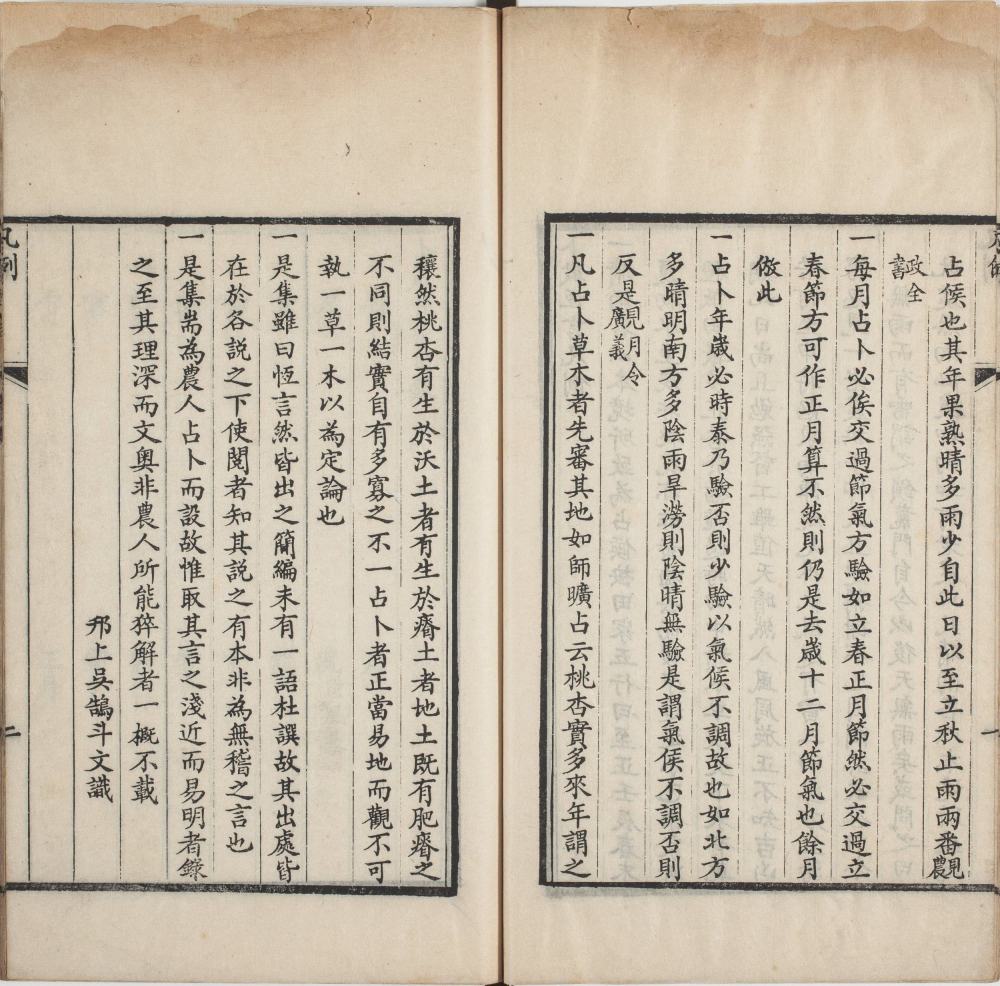 占候也其年果熟晴多雨少自此日以至立秋止雨兩番見農
政全書
一每月占卜必俟交過節氣方驗如立春正月節然必交過立
春節方可作正月算不然則仍是去歲十二月節氣也餘月
倣此
一占卜年歲必時泰乃驗否則少驗以氣候不調故也如北方
多晴明南方多陰雨旱澇則陰晴無驗是謂氣候不調否則
反是見月令廣義
一凡占卜草木者先審其地如師曠占云桃杏實多來年謂之
穰然桃杏有生於沃土者有生於瘠土者地土既有肥瘠之
不同則結實自有多寡之不一占卜者正當易地而觀不可
執一草一木以為定論也
一是集雖曰恆言然皆出之簡編未有一語杜譔故其出處皆
在於各説之下使閱者知其説之有本非為無稽之言也
一是集耑為農人占卜而設故惟取其言之淺近而易明者錄
之至其理深而文奧非農人所能猝解者一概不載
邗上吳鵠斗文識
凡例
二